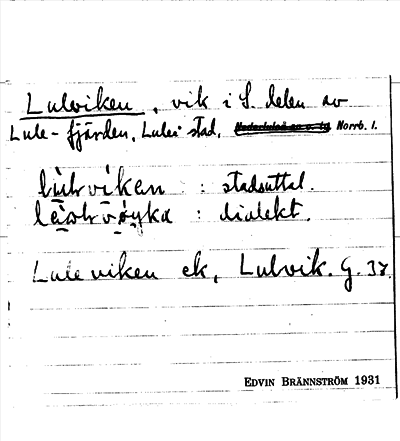 Lulviken, vik i S. delen av
Lule-fjärden, Luleå stad, Norrb. l.
: stadsuttal.
: dialekt.
Luleviken ek, Lulvik. G. 37.
EDVIN BRÄNNSTRÖM 1931